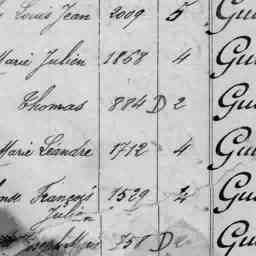 Louis Jean 2009 5 Gu
Marie Julien 1868 4 Gu
Thomas 884 D 2 Gu
Marie Leandre 1712 4 Gu
François 1529 4 Gu
Julien
Joseph Marie 751 D 2 Gu